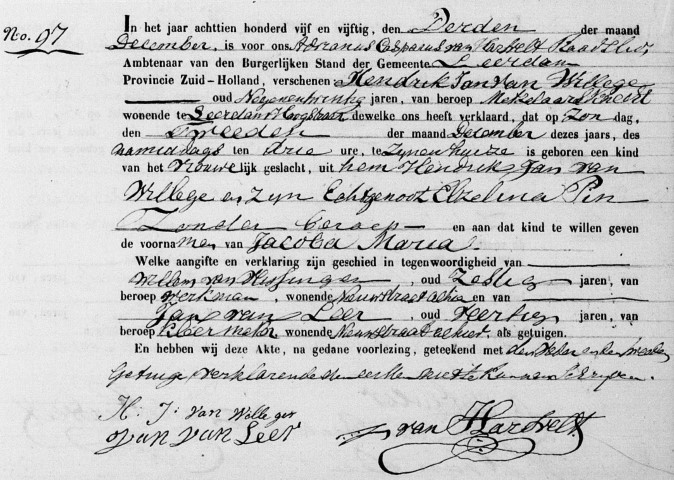 No. 97
In het jaar achttien honderd vijf en vijftig, den Derden der maand
December, is voor ons Adrianus Casparus van Hartvelt Raadslid,
Ambtenaar van den Burgerlijken Stand der Gemeente Leerdam
Provincie Zuid-Holland, verschenen Hendrik Jan van Willege
oud Negenentwintig jaren, van beroep Metselaarsknecht
wonende te Leerdam Hoogstraat dewelke ons heeft verklaard, dat op Zondag,
den Tweeden der maand December dezes jaars, des
namiddags ten drie ure, te Zynen huize is geboren een kind
van het Vrouwelijk geslacht, uit hem Hendrik Jan van
Willege en Zyn Echtgenoot Elzelina Pin
Zonder beroep en aan dat kind te willen geven
de voornamen van Jacoba Maria.
Welke aangifte en verklaring zijn geschied in tegenwoordigheid van
Willem van, oud Zestig jaren, van
beroep Werkman, wonende Nieuwstraat alhier en van
Jan van Leer, oud Veertig jaren, van
beroep Kleermaker wonende Nieuwstraat alhier. als getuigen.
En hebben wij deze Akte, na gedane voorlezing, geteekend met den Vader en den tweeden
Getuige verklarende de eerste niet te kunnen Schryven.
H: J: van Wellege
Jan van Leer
van Hartvelt